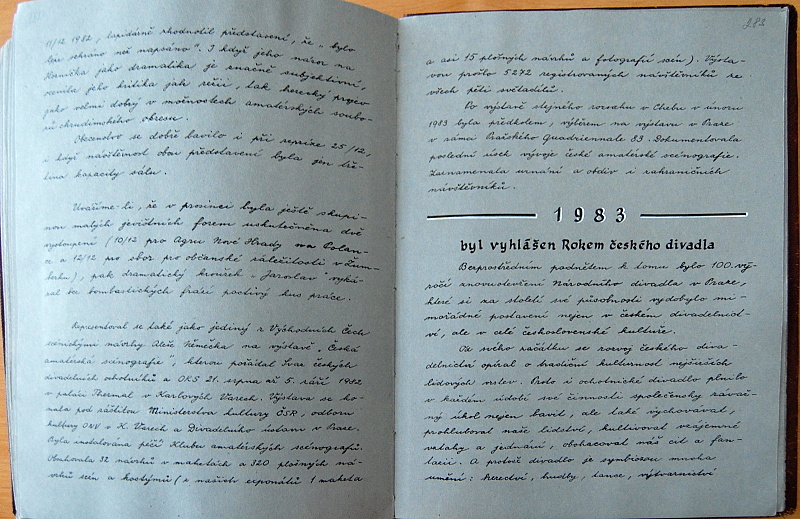 11/12 1982, lapidárně zhodnotil představení, že „bylo
lépe sehráno než napsáno". I když jeho názor na
Horníčka jako dramatika je značně subjektivní,
ocenila jeho kritika jak režii, tak herecký projev
jako velmi dobrý v možnostech amatérských soubo-
rů chrudimského okresu.
Obecenstvo se dobře bavilo i při repríze 25/12,
i když návštěvnost obou představení byla jen tře-
tina kapacity sálu.
Uvážíme-li, že v prosinci byla ještě skupi-
nou malých jevištních forem uskutečněna dvě
vystoupení (10/12 pro Agru Nové Hrady na Polan-
ce a 12/12 pro sbor pro občanské záležitosti v Žum-
berku), pak dramatický kroužek „Jaroslav" vyká-
zal bez bombastických frází poctivý kus práce.
Representoval se také jako jediný z Východních Čech
scénickými návrhy Aleše Němečka na výstavě „Česká
amatérská scénografie", kterou pořádal Svaz českých
divadelních ochotníků a OKS 21. srpna až 5. září 1982
v paláci Thermal v Karlových Varech. Výstava se ko-
nala pod záštitou Ministerstva kultury ČSR, odboru
kultury ONV v K. Varech a Divadelního ústavu v Praze.
Byla instalována péčí Klubu amatérských scénografů.
Obsahovala 32 návrhů v maketách a 320 plošných ná-
vrhů scén a kostýmů (z našich exponátů 1 maketa
282
a asi 15 plošných návrhů a fotografií scén). Výsta-
vou prošlo 5272 registrovaných návštěvníků ze
všech pěti světadílů.
Po výstavě stejného rozsahu v Chebu v únoru
1983 byla předkolem, výběrem na výstavu v Praze
v rámci Pražského Quadriennale 83. Dokumentovala
poslední úsek vývoje české amatérské scénografie.
Zaznamenala uznání a obdiv i zahraničních
návštěvníků.
1983
byl vyhlášen Rokem českého divadla
Bezprostředním podnětem k tomu bylo 100. vý-
ročí znovuotevření Národního divadla v Praze,
které si za století své působnosti vydobylo mi-
mořádné postavení nejen v českém divadelnict-
ví, ale v celé československé kultuře.
Od svého začátku se rozvoj českého diva-
delnictví opíral o tradiční kulturnost nejširších
lidových vrstev. Proto i ochotnické divadlo plnilo
v každém údobí své činnosti společensky závaž-
ný úkol nejen bavit, ale také vychovávat,
prohlubovat naše lidství, kultivovat vzájemné
vztahy a jednání, obohacovat náš cit a fan-
tazii. A protože divadlo je symbiózou mnoha
umění: herectví, hudby, tance, výtvarnictví